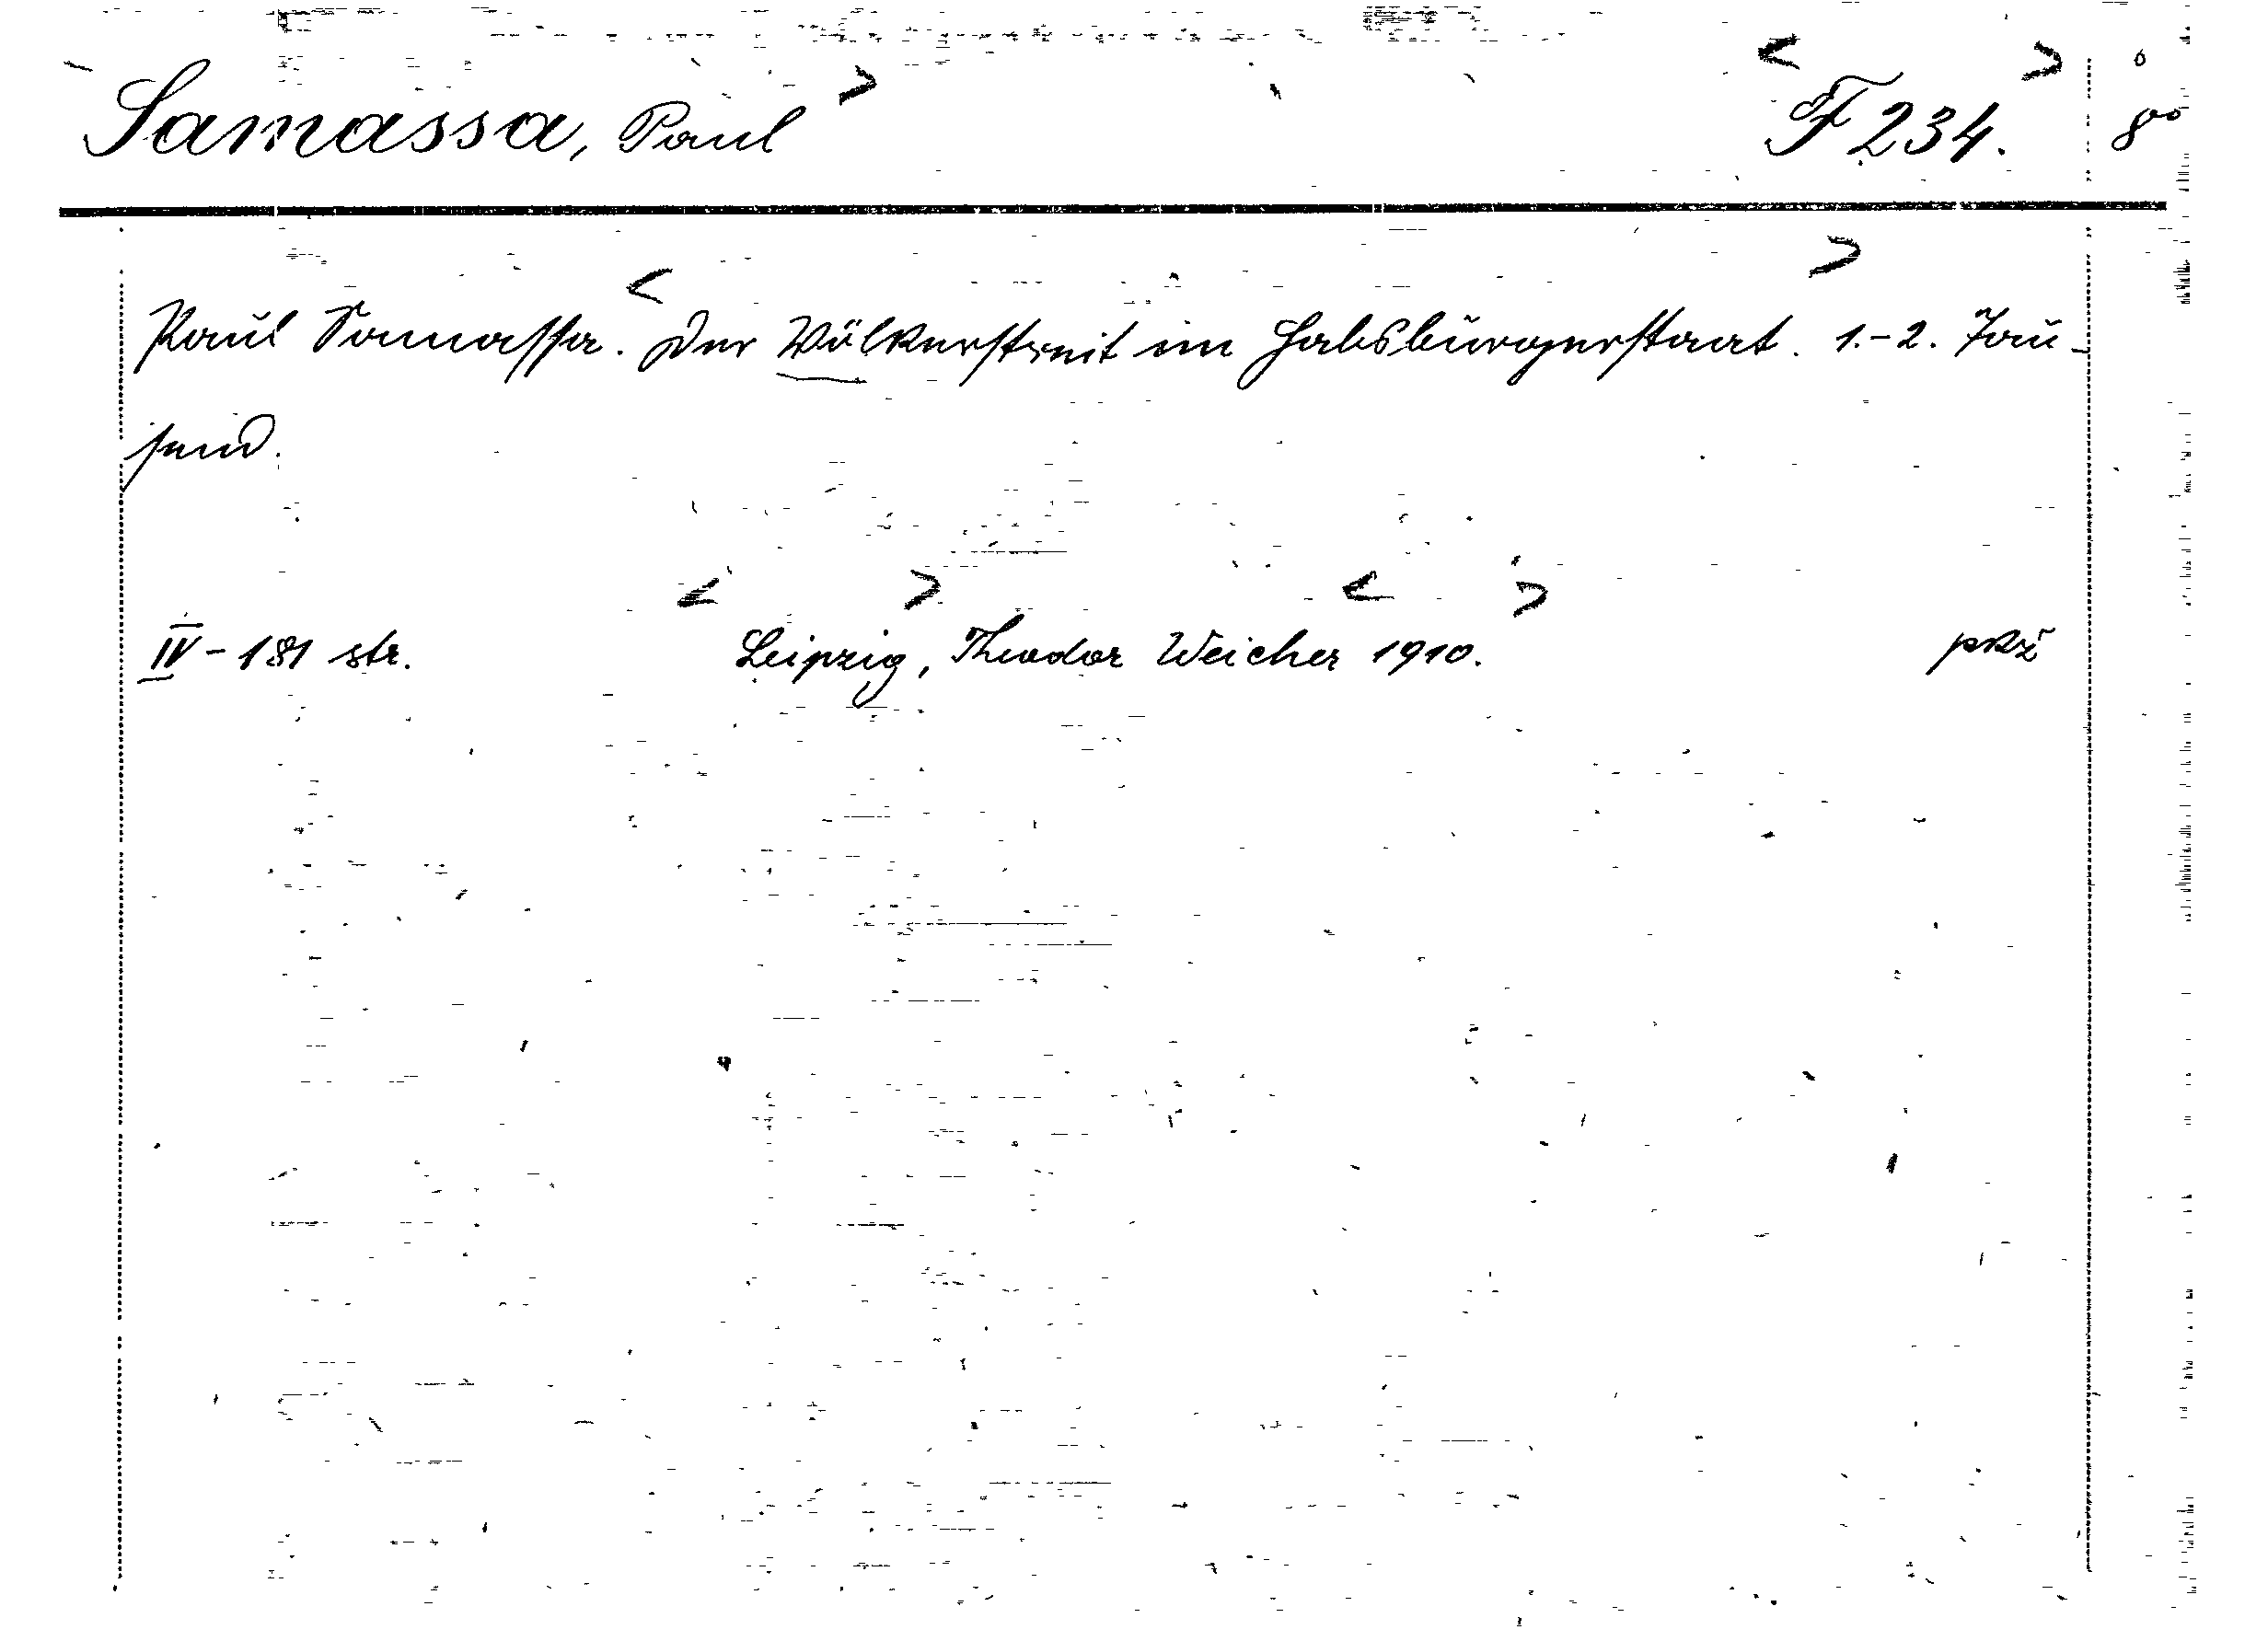 Samassa, Paul F 234. 8°
Paul Samassa. Der Völkerstreit im Habsburgerstaat. 1.-2. Tau-
send.
IV - 181 str. Leipzig, Theodor Weicher 1910.